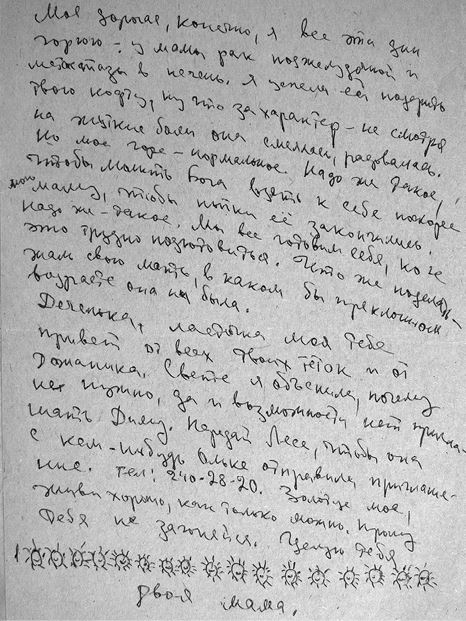 Моя дорогая, конечно, я все эти дни
горюю - у мамы рак поджелудочной и
метастазы в печень. Я успела ей подарить
твою кофту, ну что за характер - не смотря
на жуткие боли она смеялась, радовалась.
Но мое горе - нормальное. Надо же такое,
чтобы молить Бога взять к себе поскорее
мою маму, чтобы пытки её закончились.
Надо же - такое. Мы все готовим себя, но к
это трудно подготовиться. Что же поделать -
жаль свою мать, в каком бы преклонном
возрасте она ни была.
Деченька, ласточка моя тебе
привет от всех твоих тёток и от
Доманика. Свете я объяснила, почему
не нужно, да и возможности нет пригла-
шать Диму. Передай Лесе, чтобы она
с кем-нибудь Ольке отправила приглаше-
ние. тел: 240-28-20. Золотце мое,
живи хорошо, как только можно. Прошу
тебя не загоняйся. Целую тебя
твоя мама.